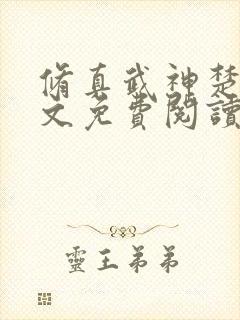 脩真武神楚
文免費閱讀
靈王弟弟